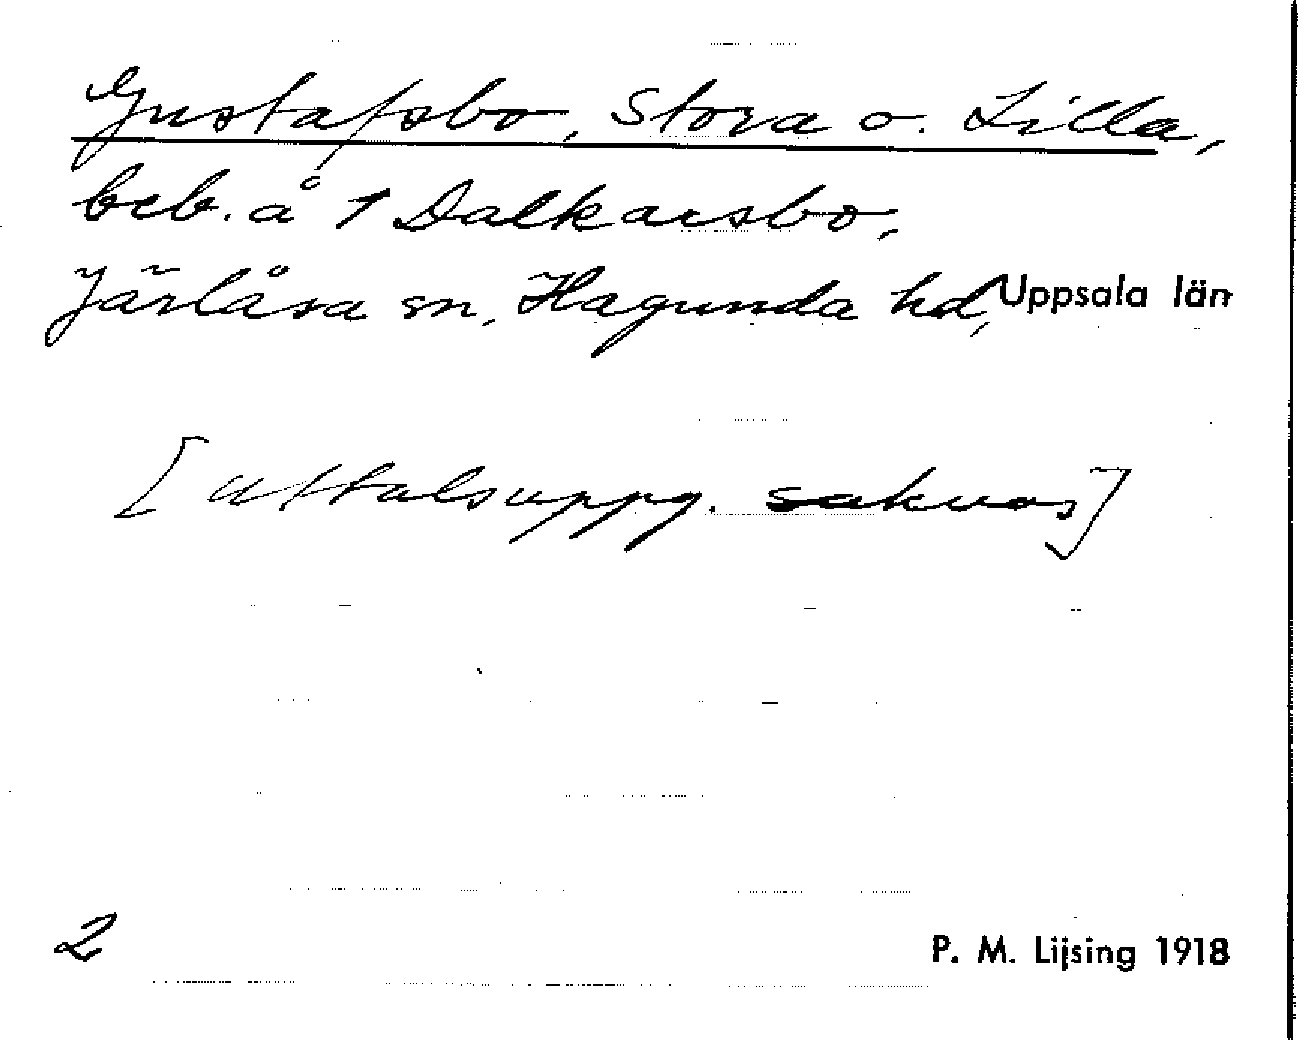 Gustafsbo, Stora o. Lilla,
beb. å 1 Dalkarsbo,
Järlåsa sn, Hagunda hd, Uppsala län
[uttalsuppg. saknas]
2
P. M. Lijsing 1918